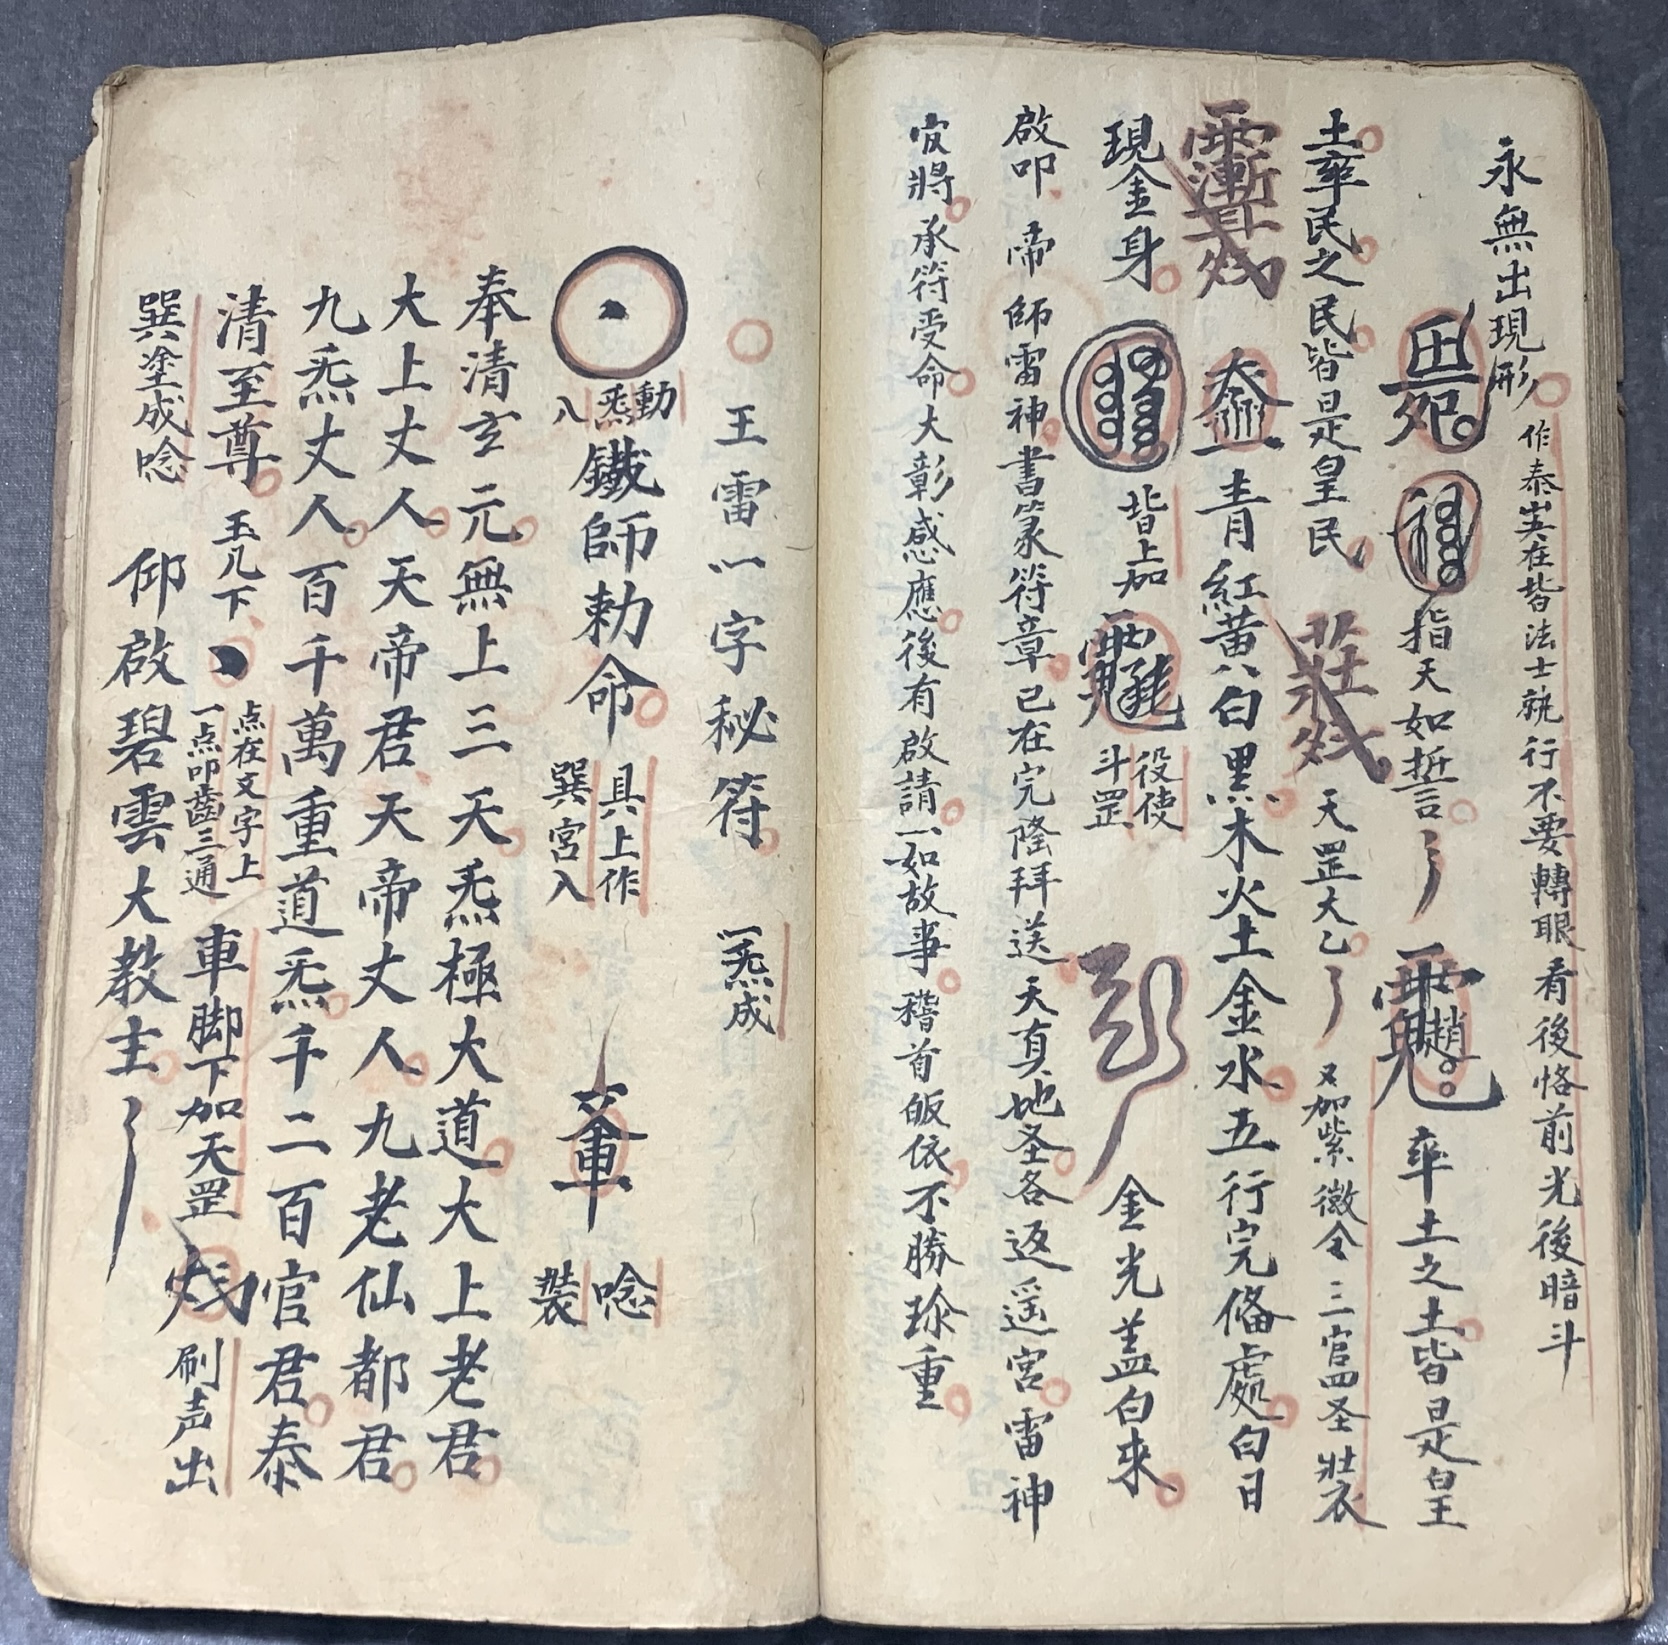 永無出現形作泰英在皆法士執行不要轉眼看後恪前光後暗斗
指天如誓言率土之土皆是皇
土率民之民皆是皇民天罡大乙又加紫微令三官四圣壯衣
青紅黃白黑木火土金水五行完俻處白日
現金身皆上加役使斗罡金光盖白來
啟叩帝師雷神書篆符章已在完隆拜送天真地圣各返遥宮雷神
官將承符受命大彰感應後有啟請一如故事稽首皈依不勝珎重
王雷一字秘符一炁成
動炁入鐵師勅命具上作巽宮入唸裝
奉清玄元無上三天炁極大道大上老君
大上丈人天帝君天帝丈人九老仙都君
九炁丈人百千萬重道炁千二百官君泰
清至尊玉几下点在文字上一点叩齒三通車脚下加天罡刷声出
巽塗成唸仰啟碧雲大教主